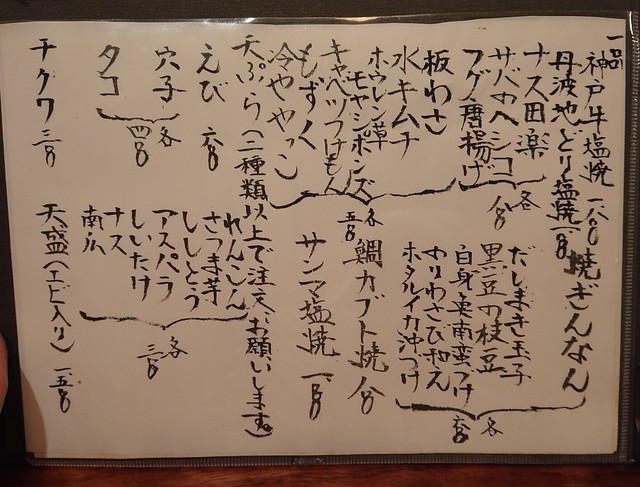 一品
神戸牛塩焼 一六〇〇
丹波地どり塩焼 一、〇〇
ナス田楽
サバのヘシコ
フグ唐揚げ
各 八〇〇
板わさ
水キムチ
ホウレン草
モヤシポンズ
キャベツつけもん
もずく
冷ややっこ
各 五〇〇
焼ぎんなん
だしまき玉子
黒豆の枝豆
白身魚南蛮づけ
わりわさび和え
ホタルイカ沖づけ
各 六〇〇
鯛カブト焼 八〇〇
サンマ塩焼
天ぷら(二種類以上で注文、お願いします。)
えび 六〇〇
穴子
タコ
各 四〇〇
チクワ 三〇〇
れんこん
さつま芋
ししとう
アスパラ
しいたけ
ナス
南瓜
各 三〇〇
天盛(エビ入り) 一五〇〇